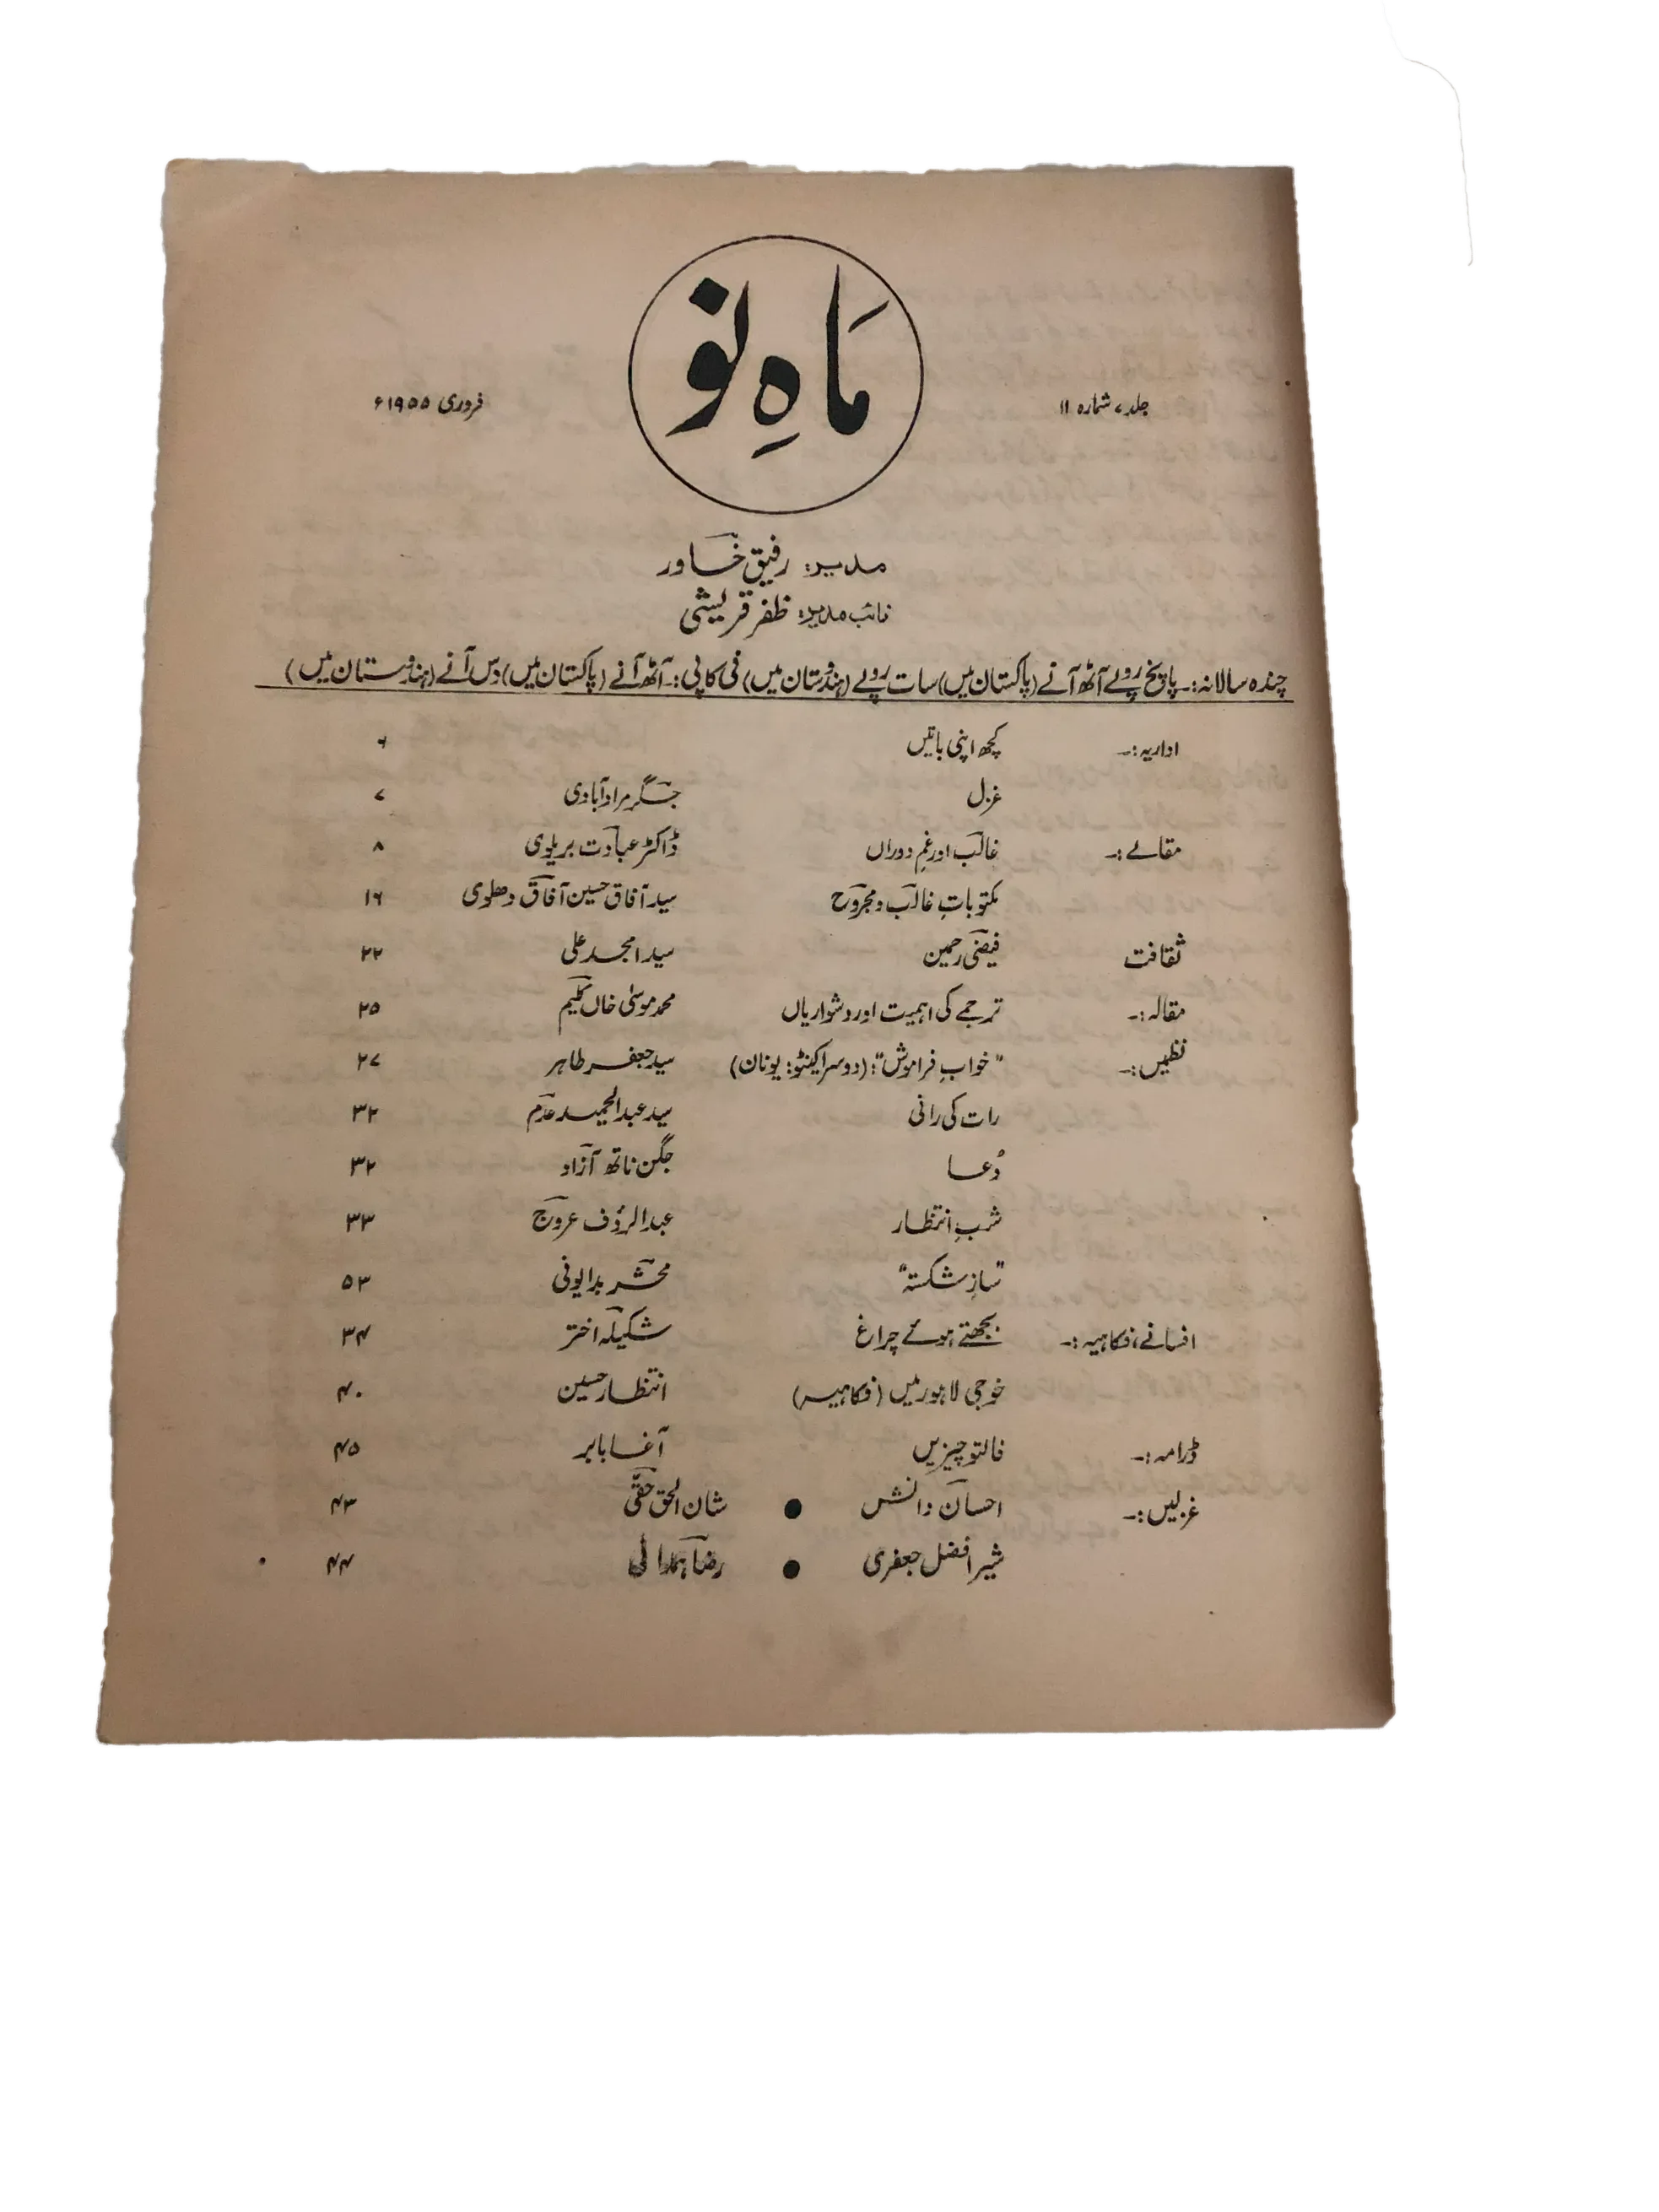 مَاہِ نو
جلد ۷ شمارہ ۱۱
فروری ۱۹۵۵ء
مدیر: رفیق خاور
نائب مدیر: ظفر قریشی
چندہ سالانہ:۔ پانچ روپے آٹھ آنے (پاکستان میں) سات روپے (ہندوستان میں) فی کاپی:۔ آٹھ آنے (پاکستان میں) دس آنے (ہندوستان میں)
اداریہ:۔ کچھ اپنی باتیں ۶
غزل جگر مرادآبادی ۷
مقالے:۔ غالب اور غمِ دوراں ڈاکٹر عبادت بریلوی ۸
مکتوباتِ غالب و مجروح سید آفاق حسین آفاق دھلوی ۱۶
ثقافت فیضی رحمین سید امجد علی ۲۲
مقالہ:۔ ترجمے کی اہمیت اور دشواریاں محمد موسیٰ خاں کلیم ۲۵
نظمیں:۔ "خوابِ فراموش": (دوسرا کینٹو: یونان) سید جعفر طاہر ۲۷
رات کی رانی سید عبدالحمید عدم ۳۲
دُعا جگن ناتھ آزاد ۳۲
شبِ انتظار عبدالرؤف عروج ۳۳
"سازِ شکستہ" محشر بدایونی ۵۳
افسانے، فکاہیہ:۔ بجھتے ہوئے چراغ شکیلہ اختر ۳۴
خوجی لاہور میں (فکاہیہ) انتظار حسین ۴۰
ڈرامہ:۔ فالتو چیزیں آغا بابر ۴۵
غزلیں:۔ احسان دانش ● شان الحق حقی ۴۳
شیر افضل جعفری ● رضا ہمدانی ۴۴